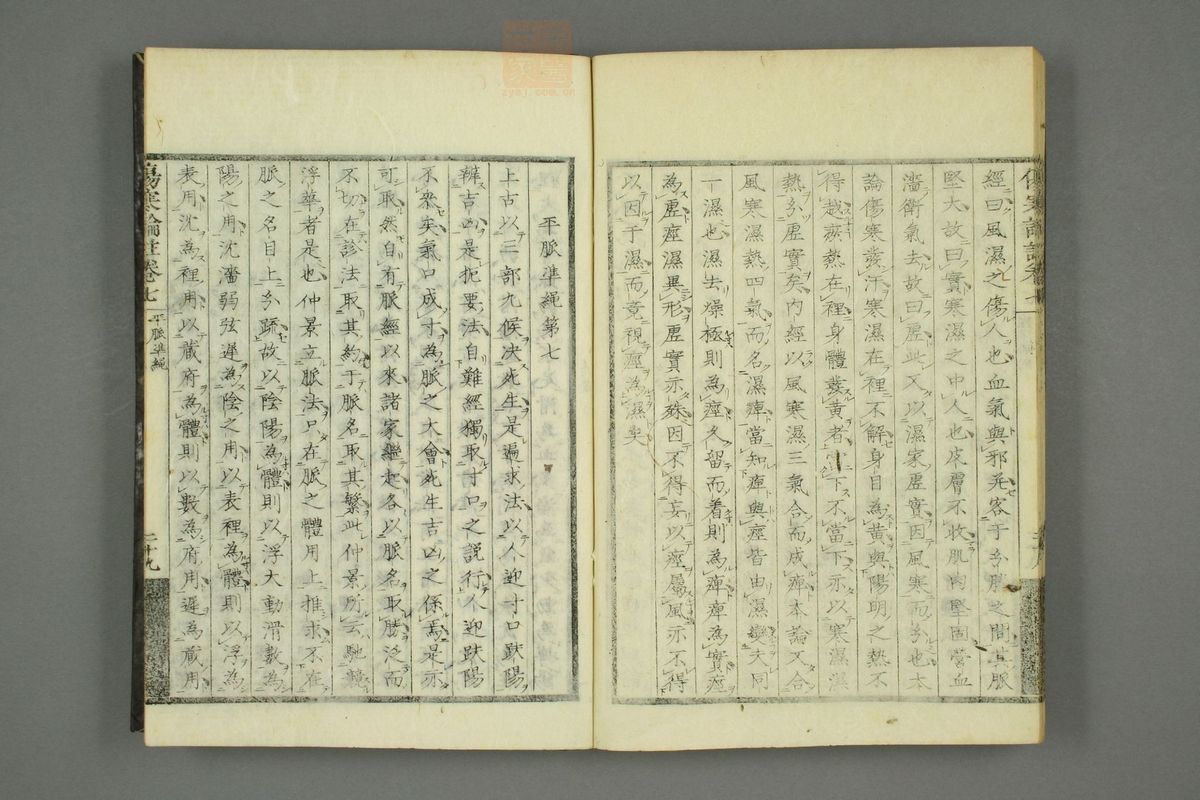 經曰風濕之傷人也血氣與邪并客于分腠之間其脈
堅大故曰實寒濕之中人也皮膚不收肌肉堅固營血
濇衛氣去故曰虛此又以濕家虛實因風寒而分也本
論傷寒發汗寒濕在裡不解身目為黃與陽明之熱不
得越瘀熱在裡身體發黃者當下不當下亦以寒濕濕
熱分虛實矣內經以風寒濕三氣合而成痺本論又合
風寒濕熱四氣而名濕痺當知痺與痙皆由濕變夫同
一濕也濕去燥極則為痙久留而着則為痺痺為實痙
為虛痙濕異形虛實亦殊因不得妄以痙屬風亦不得
以因于濕而竟視痙為濕矣
平脈準繩第七
上古以三部九候决死生是遍求法以人迎寸口趺陽
辨吉凶是扼要法自難經獨取寸口之説行人迎趺陽
不衆矣氣口成寸為脈之大會死生吉凶之係焉是亦
可取然自有脈經以來諸家繼起各以脈名取勝泛而
不切在診法取其約于脈名取其繁此仲景所云馳競
浮華者是也仲景立脈法只在脈之體用上推求不在
脈之名目上分疏故以陰陽為體則以浮大動滑數為
陽之用沈濇弱弦遲為陰之用以表裡為體則以浮為
表用沈為裡用以藏府為體則以數為府用遲為藏用
傷寒論註卷七
平脈準繩
二十九